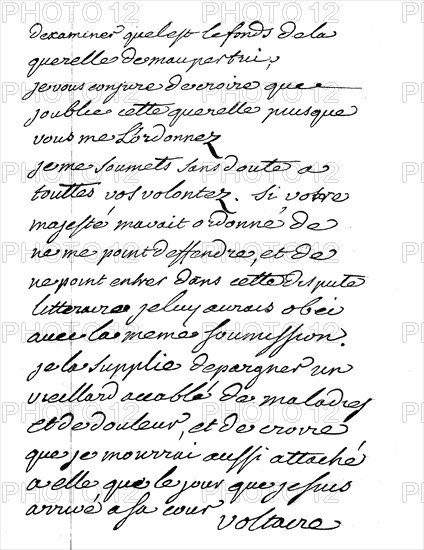 dexaminer quel est le fonds de la
querelle de maupertui,
je vous conjure de croire que
joublie cette querelle puisque
vous me L'ordonnez
je me soumets sans doute a
touttes vos volontez. si votre
majesté mavait ordonné de
ne me point deffendre, et de
ne point entrer dans cette dispute
litteraire je luy aurais obéi
avec la meme soumission.
je la supplie depargner un
vieillard accablé de maladies
et de douleur, et de croire
que je mourrai aussi attaché
a elle que le jour que je suis
arrivé a sa cour
voltaire